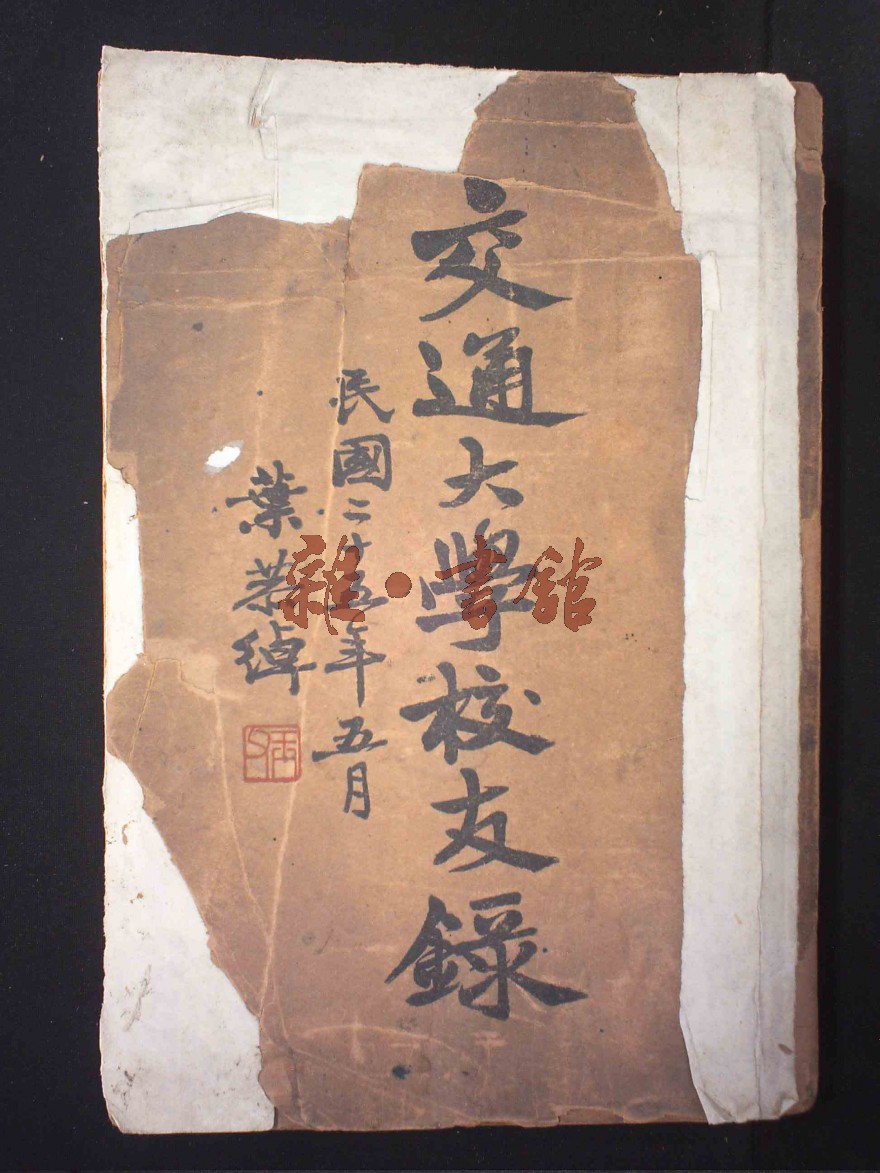 交通大學校友錄
民國二廿五年五月
葉恭綽
雜·書館